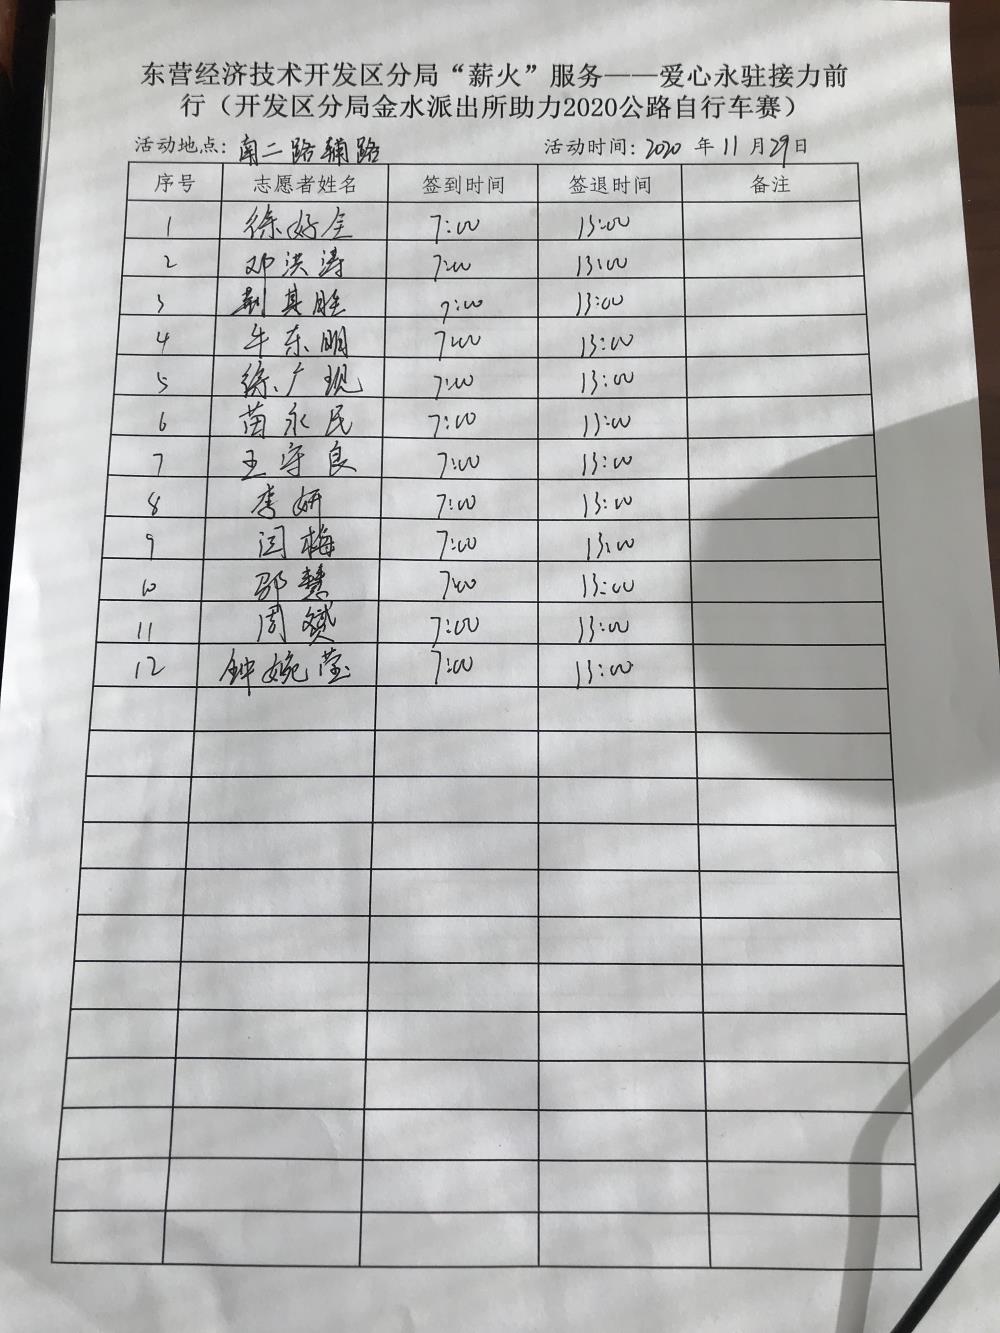 东营经济技术开发区分局“薪火”服务——爱心永驻接力前
行（开发区分局金水派出所助力2020公路自行车赛）
活动地点: 南二路辅路 活动时间: 2020 年 11 月 29 日
序号 志愿者姓名 签到时间 签退时间 备注
1 徐好全 7:00 13:00
2 邓洪涛 7:00 13:00
3 其胜 7:00 13:00
4 牛东明 7:00 13:00
5 徐广现 7:00 13:00
6 苗永民 7:00 13:00
7 王守良 7:00 13:00
8 李妍 7:00 13:00
9 闫梅 7:00 13:00
10 慧 7:00 13:00
11 周 7:00 13:00
12 钟婉莹 7:00 13:00